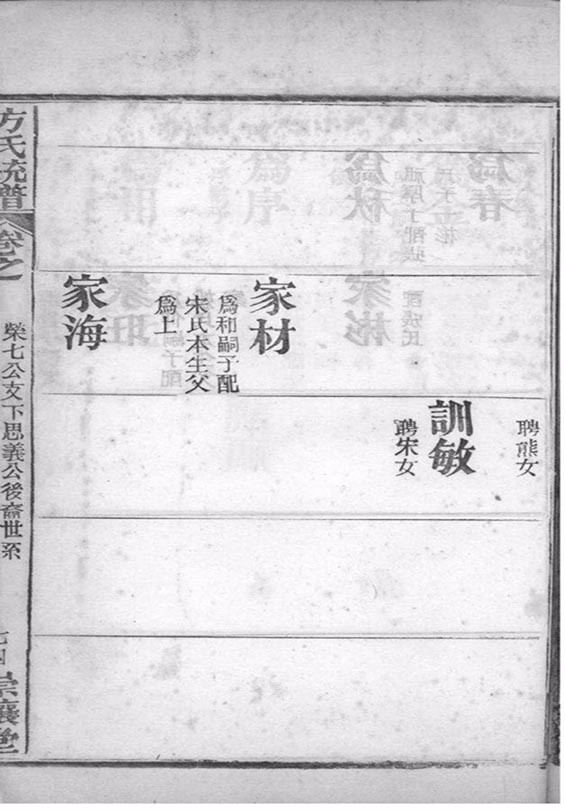 聘熊女
訓敏
聘朱女
家材
爲和嗣子配
宋氏本生父
爲上
家海
方氏統譜
卷之
榮七公支下思義公後裔世系